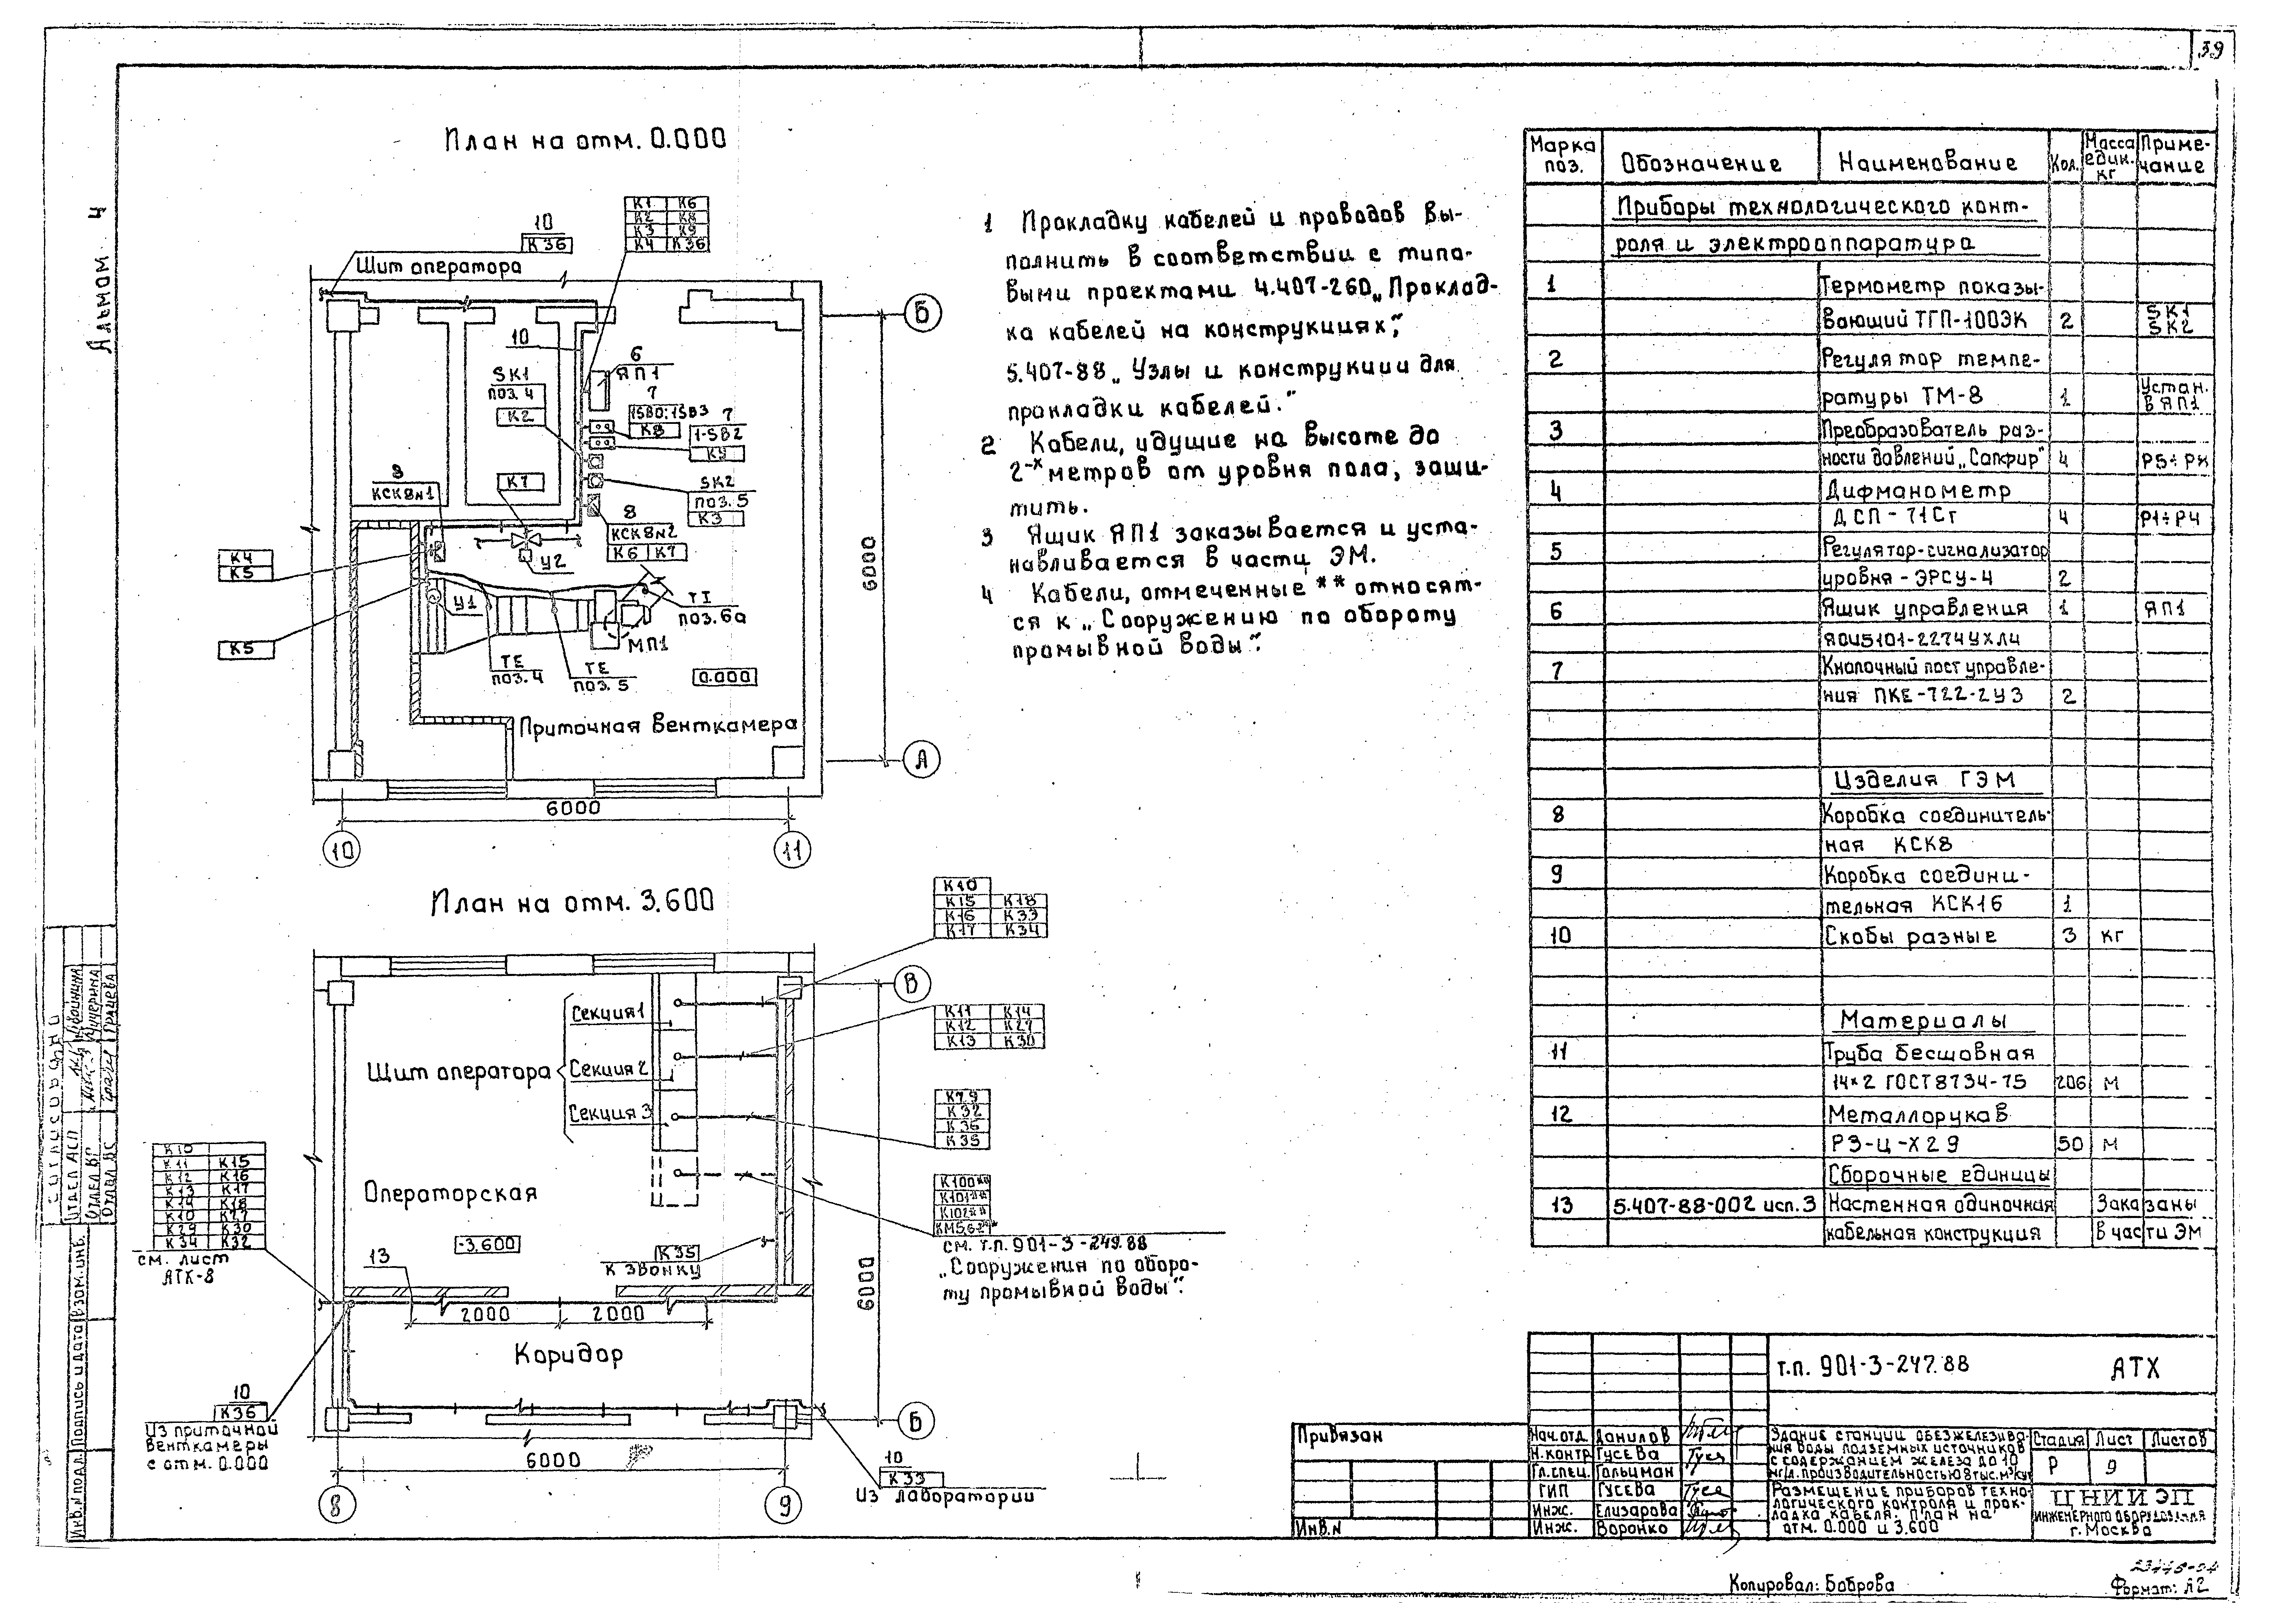 39
Альбом 4
План на отм. 0.000
10
К36
Щит оператора
К1 К6
К2 К8
К3 К9
К4 К36
Б
10
6
ЯП1
SK1
поз. 4
К2
7
1SB0; 1SB3
К8
7
1-SB2
К9
КСК8№1
К7
SK2
поз. 5
К3
8
КСК8№2
К6 К7
У2
К4
К5
К5
У1
ТЕ
поз. 4
ТЕ
поз. 5
МП1
поз. 6а
0.000
6000
Приточная венткамера
А
6000
10
11
План на отм. 3.600
К10
К15 К18
К16 К33
К17 К34
В
Секция 1
Щит оператора
Секция 2
Секция 3
К11 К14
К12 К27
К13 К30
К32
К36
К35
К100**
К101**
К102**
см. т.п. 901-3-249.88
„Сооружения по оборо-
ту промывной воды".
Операторская
-3.600
К35
К звонку
13
К10
К11 К15
К12 К16
К13 К17
К14 К18
К10 К27
К29 К30
К34 К32
см. лист
АТХ-8
2000
2000
Коридор
6000
10
К36
Из приточной
венткамеры
с отм. 0.000
6000
8
9
Б
10
К33
Из лаборатории
1 Прокладку кабелей и проводов вы-
полнить в соответствии с типо-
выми проектами 4.407-260 „Проклад-
ка кабелей на конструкциях",
5.407-88 „Узлы и конструкции для
прокладки кабелей."
2 Кабели, идущие на высоте до
2-х метров от уровня пола, защи-
тить.
3 Ящик ЯП1 заказывается и уста-
навливается в части ЭМ.
4 Кабели, отмеченные ** относят-
ся к „Сооружению по обороту
промывной воды".
Марка поз. Обозначение Наименование Кол. Масса един. кг Приме-чание
Приборы технологического конт-
роля и электроаппаратура
1 Термометр показы-
вающий ТГП-100ЭК 2 SK1 SK2
2 Регулятор темпе-
ратуры ТМ-8 1 Устан. в ЯП1
3 Преобразователь раз-
ности давлений „Сапфир" 4
4 Дифманометр
ДСП-71Сг 4 Р1÷Р4
5 Регулятор-сигнализатор
уровня-ЭРСУ-4 2
6 Ящик управления 1 ЯП1
ЯОУ5101-2274УХЛ4
7 Кнопочный пост управле-
ния ПКЕ-722-2У3 2
Изделия ГЭМ
8 Коробка соединитель-
ная КСК8
9 Коробка соедини-
тельная КСК16 1
10 Скобы разные 3 кг
Материалы
11 Труба бесшовная
14×2 ГОСТ 8734-75 206 м
12 Металлорукав
РЗ-Ц-Х29 50 м
Сборочные единицы
13 5.407-88-002 исп. 3 Настенная одиночная Заказаны
кабельная конструкция в части ЭМ
т.п. 901-3-247.88 АТХ
Привязан
Инв.№
Нач.отд. Данилов
Н.контр. Гусева
Гл.спец. Гольцман
ГИП Гусева
Инж. Елизарова
Инж. Воронко
Здание станции обезжелезива-
ния воды подземных источников
с содержанием железа до 10
мг/л. производительностью 8 тыс. м³/сут
Стадия Лист Листов
Р 9
Размещение приборов техно-
логического контроля и прок-
ладка кабеля. План на
отм. 0.000 и 3.600
ЦНИИЭП
инженерного оборудования
г. Москва
Копировал: Боброва
Формат: А2
Согласовано
Отдел АСП
Отдел ВГ
Отдел ВС
Кучерина
Грачева
Взам. инв.
Подпись и дата
Инв.№ подл.